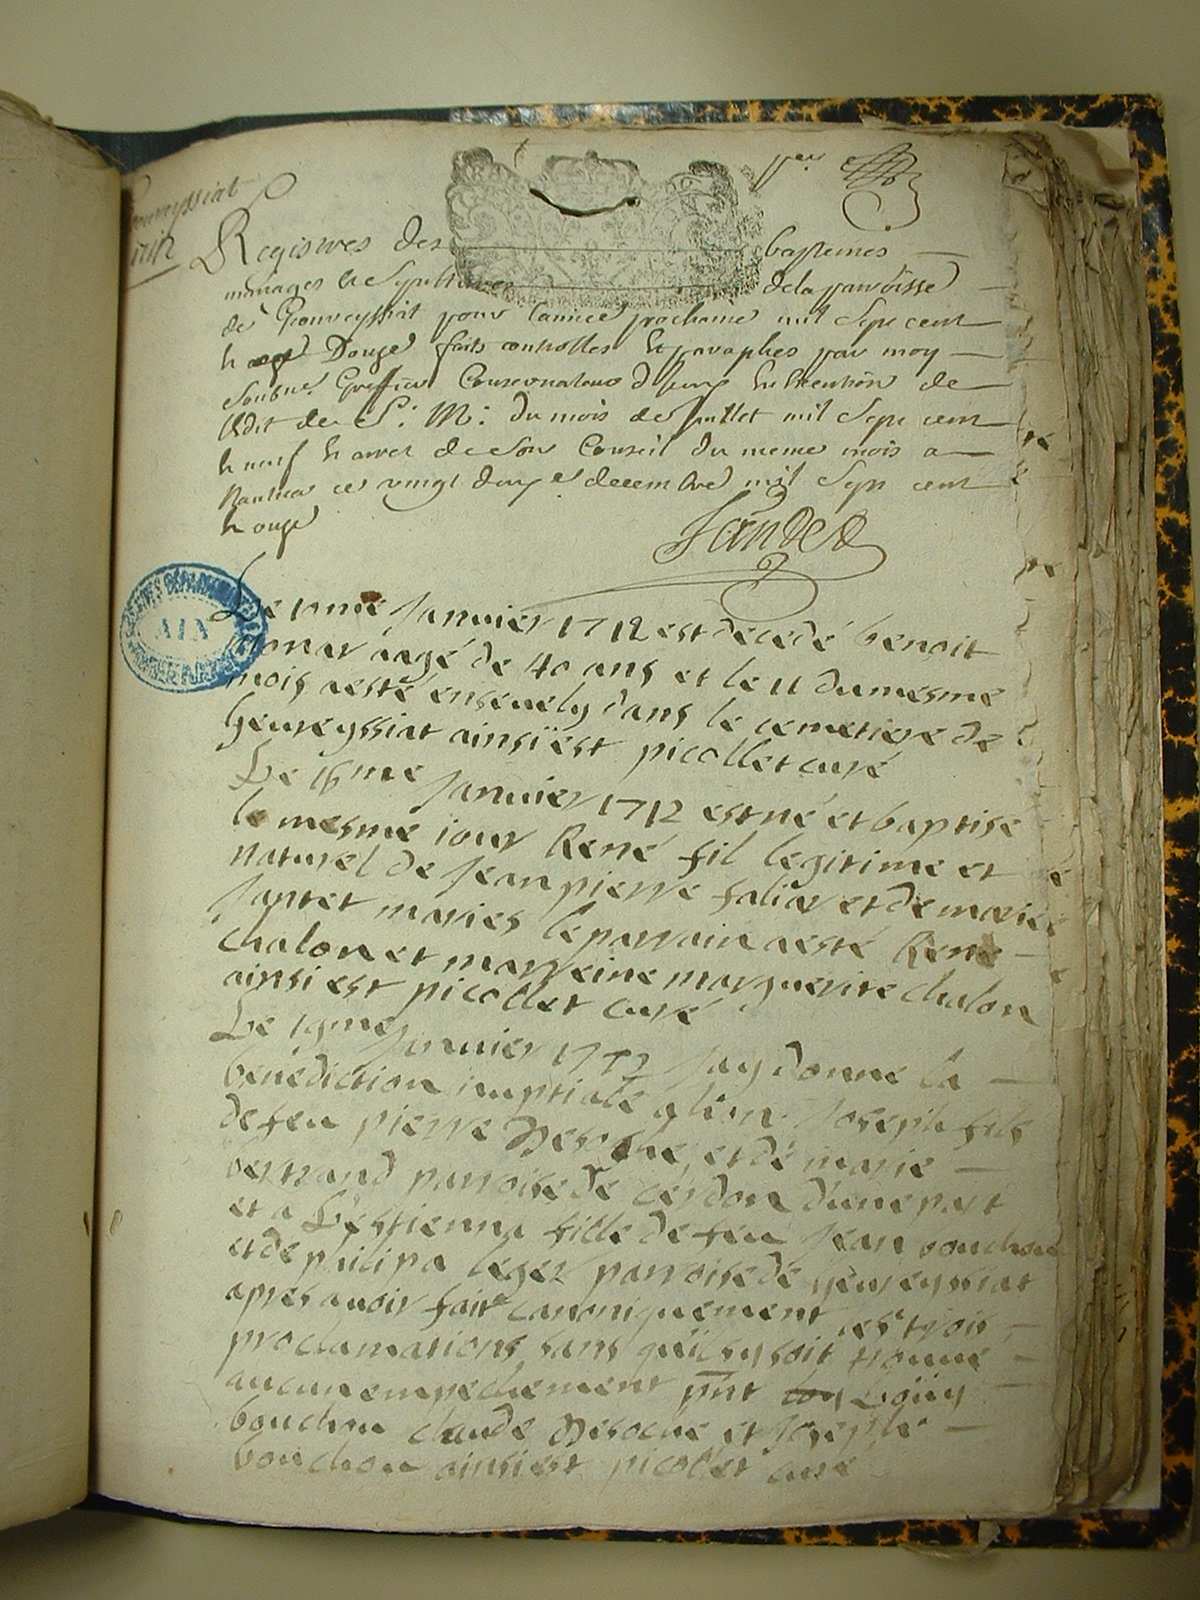 1712
Registres des baptemes
mariages et Sepultures de la parroisse
de pour l'année prochaine mil Sept cent
et Douze faits controllés et paraphés par moy
Soubné Greffier Conservateur en execution de
Edit de S. M. du mois de Juillet mil Sept cent
et neuf et arret de Son Conseil du meme mois a
Nantua ce vingt douze decembre mil Sept cent
et onze
Le Januier 1712 est decedé benoit
aagé de 40 ans et le 11 du mesme
mois a esté enseuely dans le cemetiere de
geureyssiat ainsi est picollet curé
Le 16me Januier 1712 est né et baptisé
le mesme iour René fil legitime et
naturel de Jean pierre et de marie
Jantet mariés le parrain a esté René
chalon et marreine marguerite chalon
ainsi est picollet curé
Le 19me Januier 1712 Jay donné la
benediction nuptiale a Joseph fils
de feu pierre et de marie
bertrand parroise de cerdon d'une part
et a Estienna fille de feu Jean bouchon
et de philipa leger parroise de geureyssiat
apres auoir fait canoniquement les trois
proclamations sans quil sy soit trouué
aucun empechement pnt Loüis
bouchon claude et Joseph
bouchon ainsi est picollet curé
ARCHIVES DEPARTEMENTALES
AIN